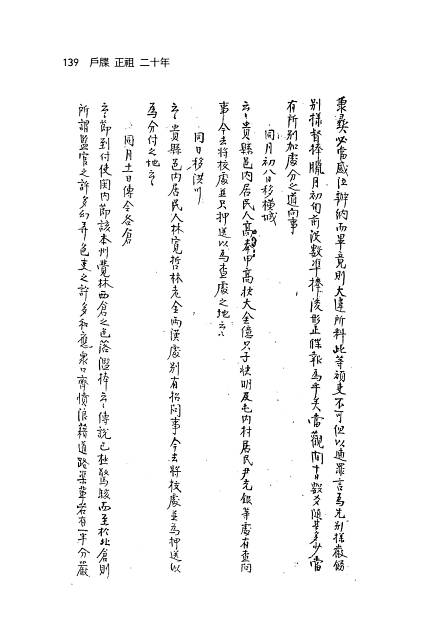 139 戶牒 正祖 二十年
秉彛必當感泣辦納而畢竟則大違所料此等頑吏不可但以言爲先別樣嚴飭
別樣督捧臘月初旬前沒數準捧後形止牒報爲乎矣當觀十日數爻隨其多少當
有所別加處分之道向事
同月初八日移橫城
云云貴縣邑內居民人高奉甲高大金億只子快明及屯內村居民尹先銀等處有查問
事今去將校處並只押送以爲查處之地云云
同日移洪川
云云貴縣邑內居民人林寬哲林老金兩漢處別有招問事今去將校處並爲押送以
爲分付之地云云
同月十一日傳令各倉
云云節到付使關內節該本州費林西倉之色落濫捧云云傳說已極驚駭而至於北倉則
所謂監官之許多幻弄色吏之許多和應衆口齊憤浪藉道路渠輩若有一半分嚴